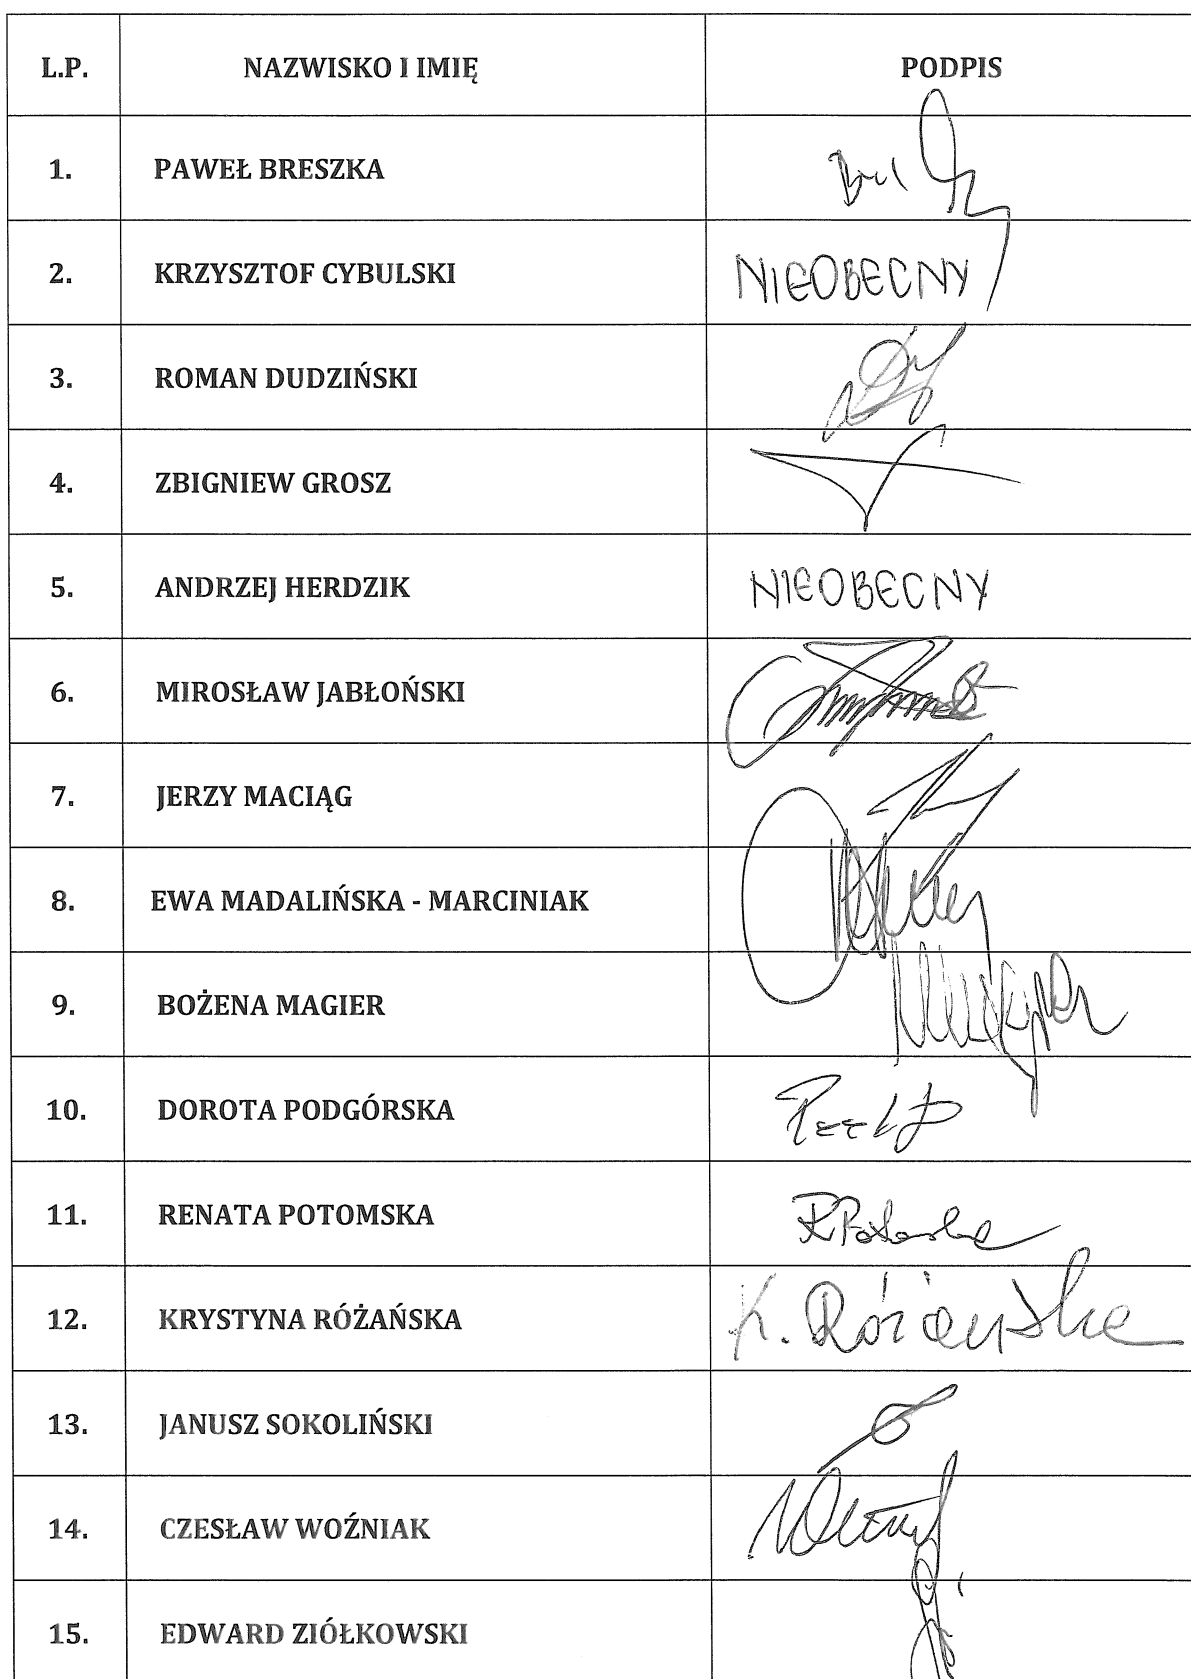 L.P. NAZWISKO I IMIĘ PODPIS
1. PAWEŁ BRESZKA
2. KRZYSZTOF CYBULSKI NIEOBECNY
3. ROMAN DUDZIŃSKI
4. ZBIGNIEW GROSZ
5. ANDRZEJ HERDZIK NIEOBECNY
6. MIROSŁAW JABŁOŃSKI
7. JERZY MACIĄG
8. EWA MADALIŃSKA - MARCINIAK
9. BOŻENA MAGIER
10. DOROTA PODGÓRSKA
11. RENATA POTOMSKA R.Potomska
12. KRYSTYNA RÓŻAŃSKA K. Różańska
13. JANUSZ SOKOLIŃSKI
14. CZESŁAW WOŹNIAK
15. EDWARD ZIÓŁKOWSKI